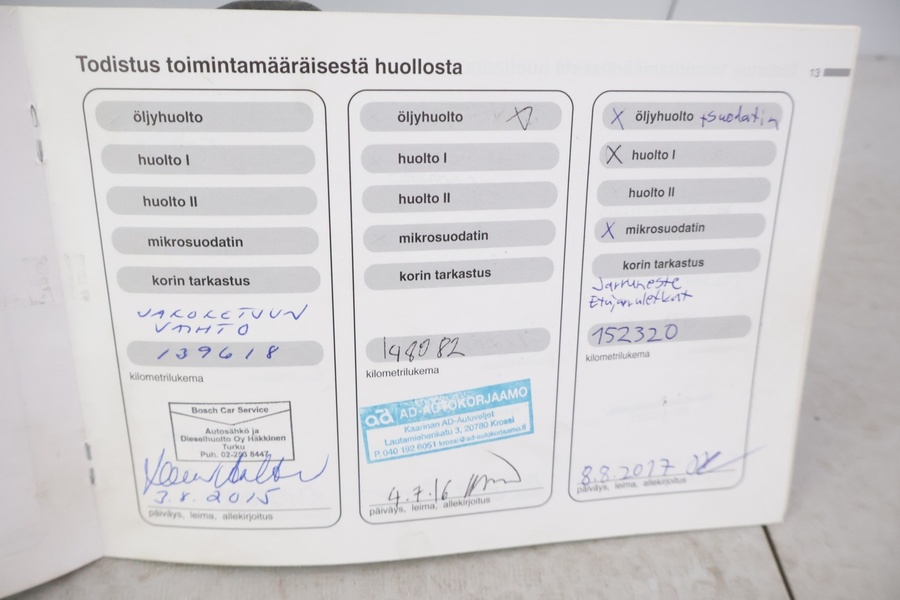 Todistus toimintamääräisestä huollosta
13
öljyhuolto
huolto I
huolto II
mikrosuodatin
korin tarkastus
JAKOKETJUN
VAIHTO
139618
kilometrilukema
Bosch Car Service
Autosähkö ja
Dieselhuolto Oy Häkkinen
Turku
Puh. 02-293 8447
3.8.2015
päiväys, leima, allekirjoitus
öljyhuolto X
huolto I
huolto II
mikrosuodatin
korin tarkastus
148082
kilometrilukema
ad AD-AUTOKORJAAMO
Kaarinan AD-Autoveljet
Lautamiehenkatu 3, 20780 Krossi
P. 040 192 6051 krossi@ad-autokorjaamo.fi
4.7.16
päiväys, leima, allekirjoitus
X öljyhuolto +suodatin
X huolto I
huolto II
X mikrosuodatin
korin tarkastus
Jarruneste
Etujarruletkut
152320
kilometrilukema
8.8.2017
päiväys, leima, allekirjoitus